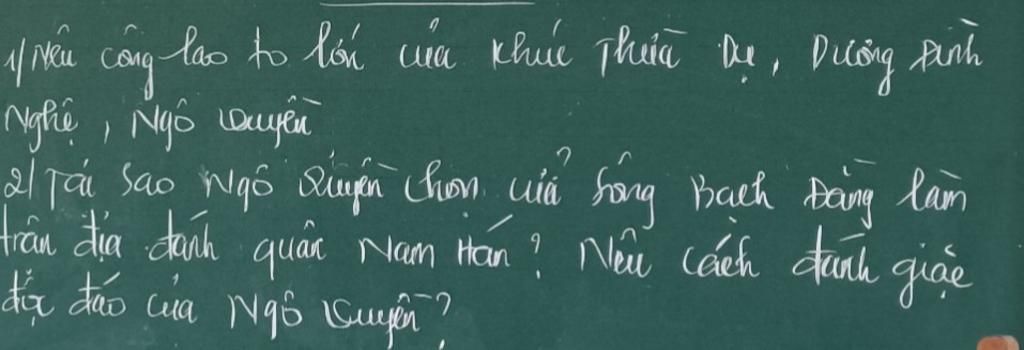 1/ Nêu công lao to lớn của Khúc Thừa Dụ, Dương Đình
Nghệ, Ngô Quyền
2/ Tại sao Ngô Quyền chọn cửa sông Bạch Đằng làm
trận địa đánh quân Nam Hán? Nêu cách đánh giặc
độc đáo của Ngô Quyền?